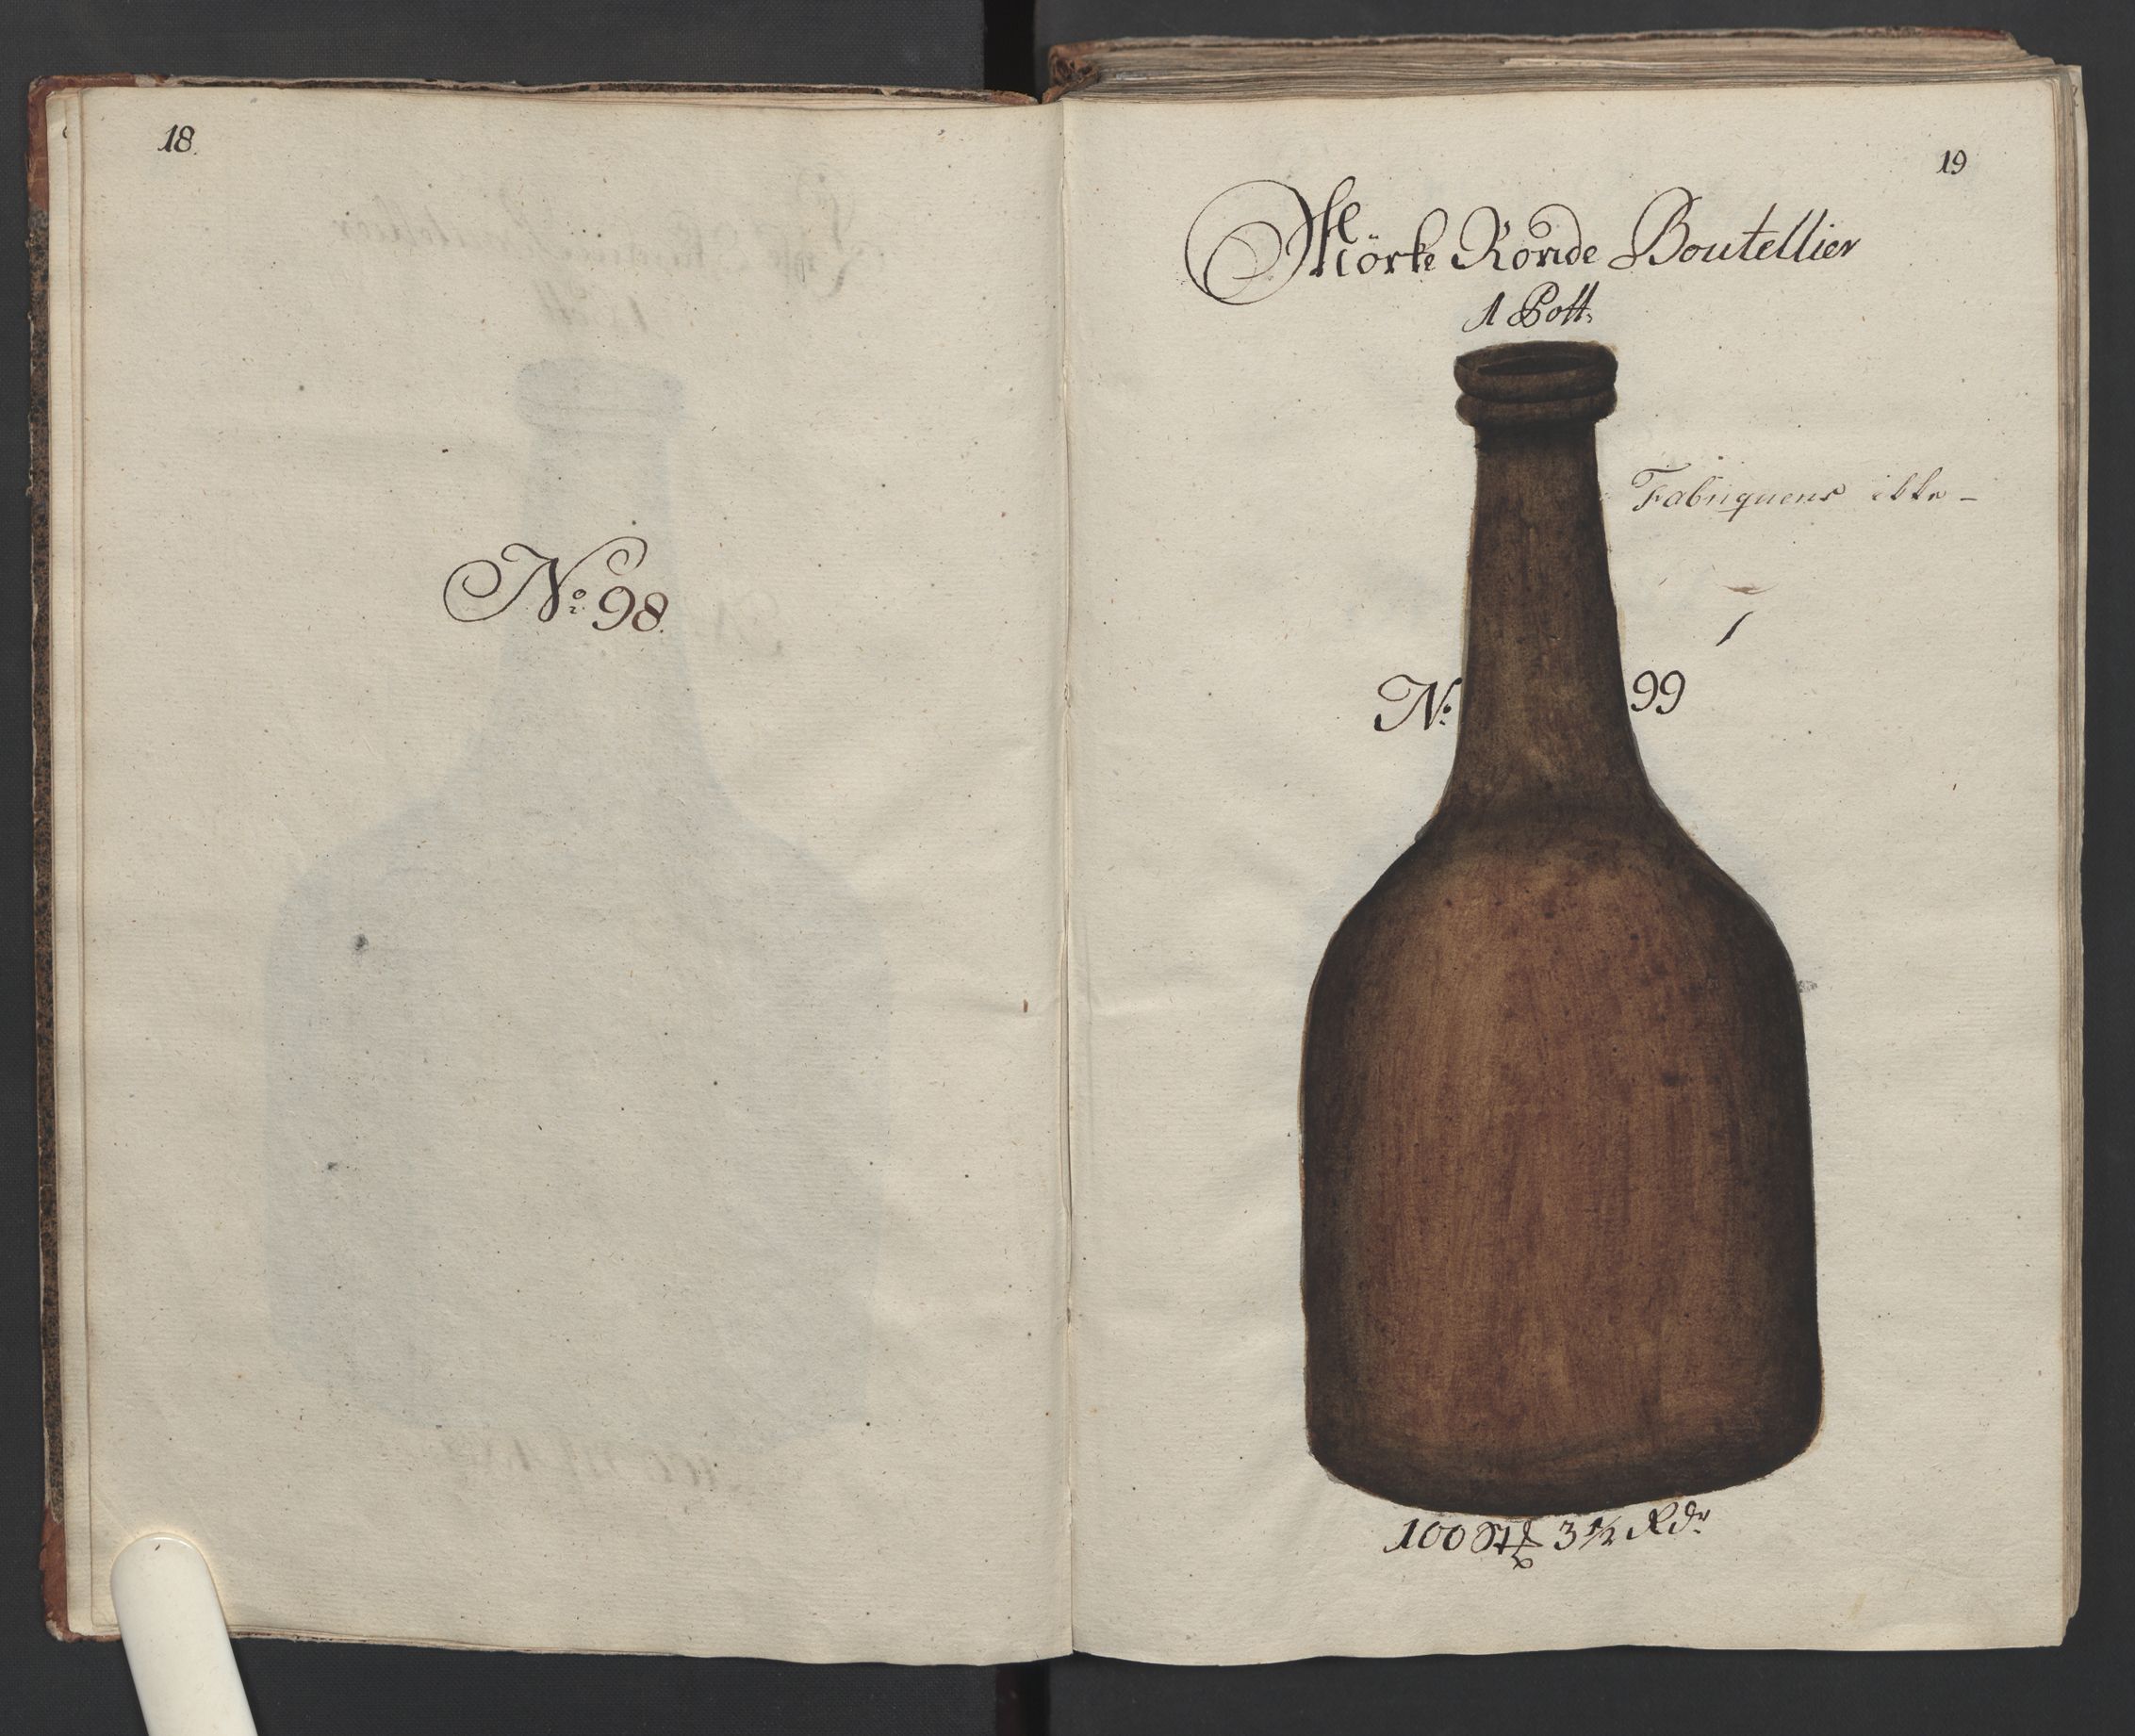 18.
No. 98.
19
Mörke Ronde Boutellier
1 Pott.
Fabriquens ikke –
No. 99
100 St 3 1/2 Rdr